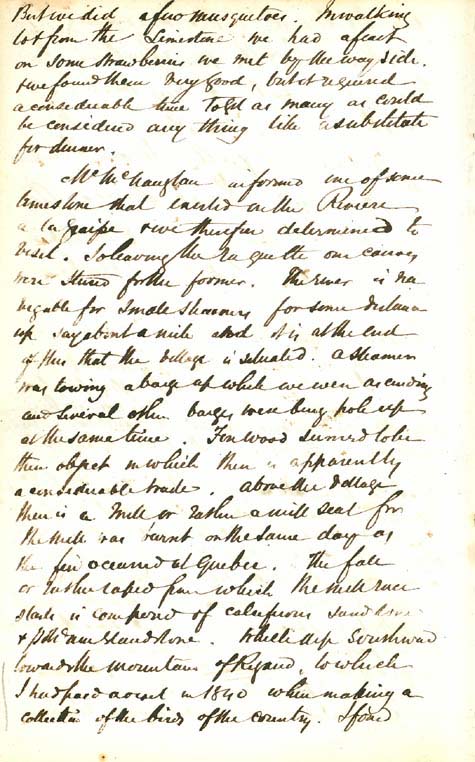 But we did a few musquetoes. In walking
lot from the Limestone we had a feast
on some strawberries we met by the way side.
& we found them very good, but it required
a considerable time to get as many as could
be considered any thing like a substitute
for dinner.
Mr McNaughton informed me of some
limestone that existed on the Riviere
a la Graisse & we therefore determined to
visit. So leaving the Raquette our canoes
were steered for the former. The river is na
vigable for small steamers for some distance
up say about a mile and it is at the end
of this that the village is situated. A steamer
was towing a barge up while we were ascending
and several other barges were being poled up
at the same time. Fire wood seemed to be
their object in which there is apparently
a considerable trade. Above the village
there is a mill or rather a mill seat for
the mill was burnt on the same day as
the fire occurred at Quebec. The fall
or rather rapid from which the mill race
starts is composed of calciferous sand stone
& Potsdam Sandstone. Strolled up Southward
towards the mountain of Rigaud, to which
I had paid a visit in 1840 when making a
collection of the birds of the country. I found